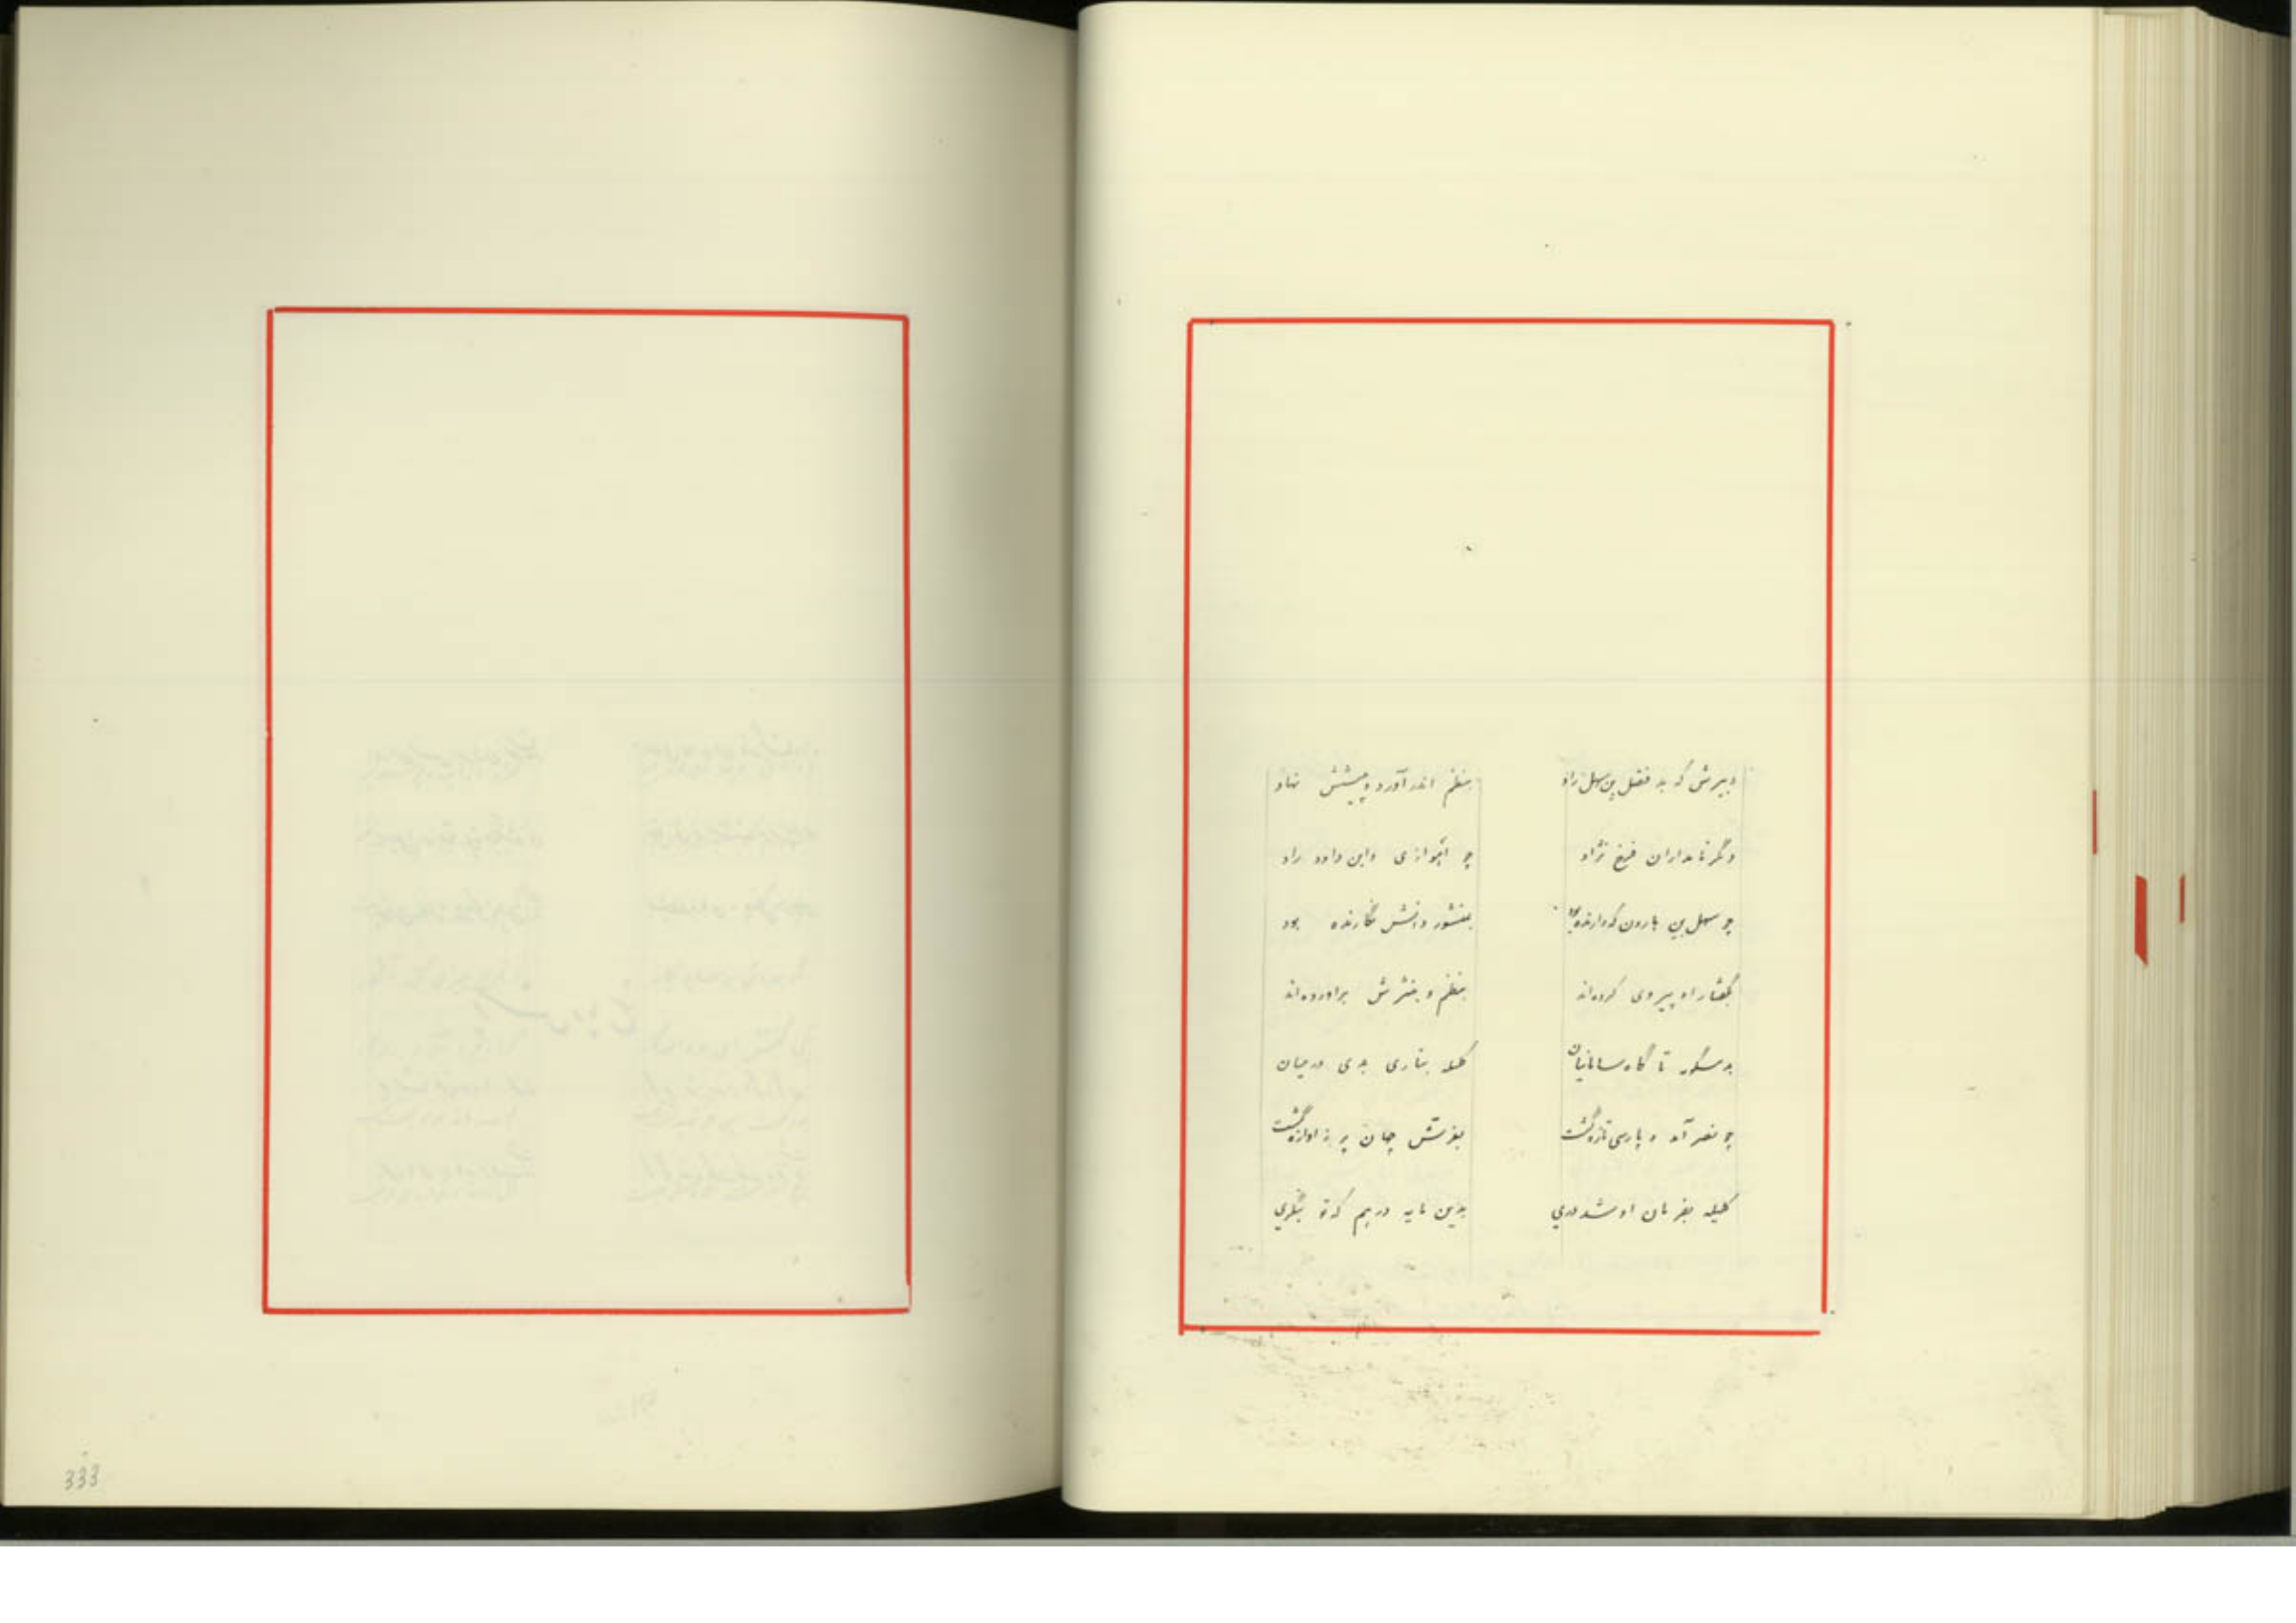 دبیرش که بد فضل بن سهل راد بنظم اندر آورد و پیشش نهاد
دگر نامداران فرخ نژاد چو اهوازی و ابن داود راد
چو سهل بن هارون که دارنده بود بمنثور دانش نگارنده بود
بگفتار او پیروی کرده‌اند بنظم و بنثرش برآورده‌اند
بدستور تا گاه سامانیان کلیله بتازی بدی در میان
چو نصر آمد و پارسی تازه گشت بفرش جهان پر ز آوازه گشت
کلیله بفرمان او شد دری بدین مایه درهم که تو بنگری
333